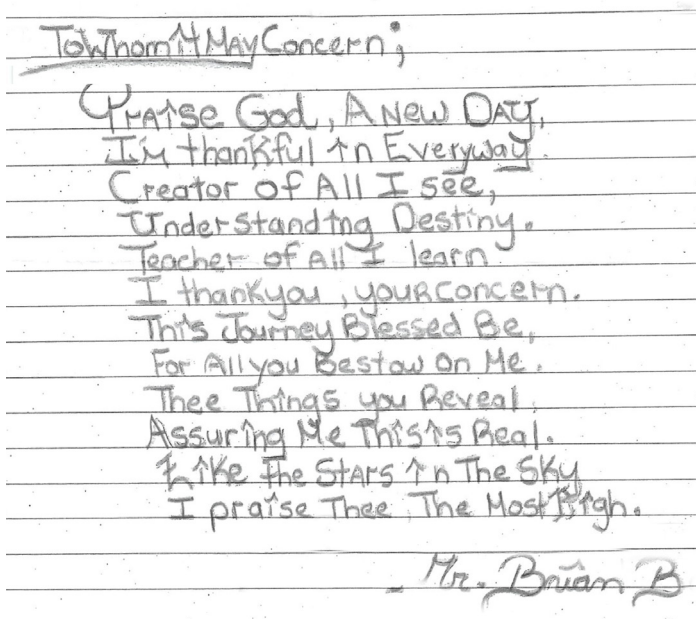 To Whom it May Concern;
Praise God, A New Day,
I'm thankful in Everyway.
Creator of All I see,
Understanding Destiny.
Teacher of All I learn
I thankyou, your concern.
This Journey Blessed Be,
For All you Bestow On Me.
Thee Things you Reveal,
Assuring Me This is Real.
Like The Stars in The Sky
I praise Thee, The Most High.
- Mr. Brian B